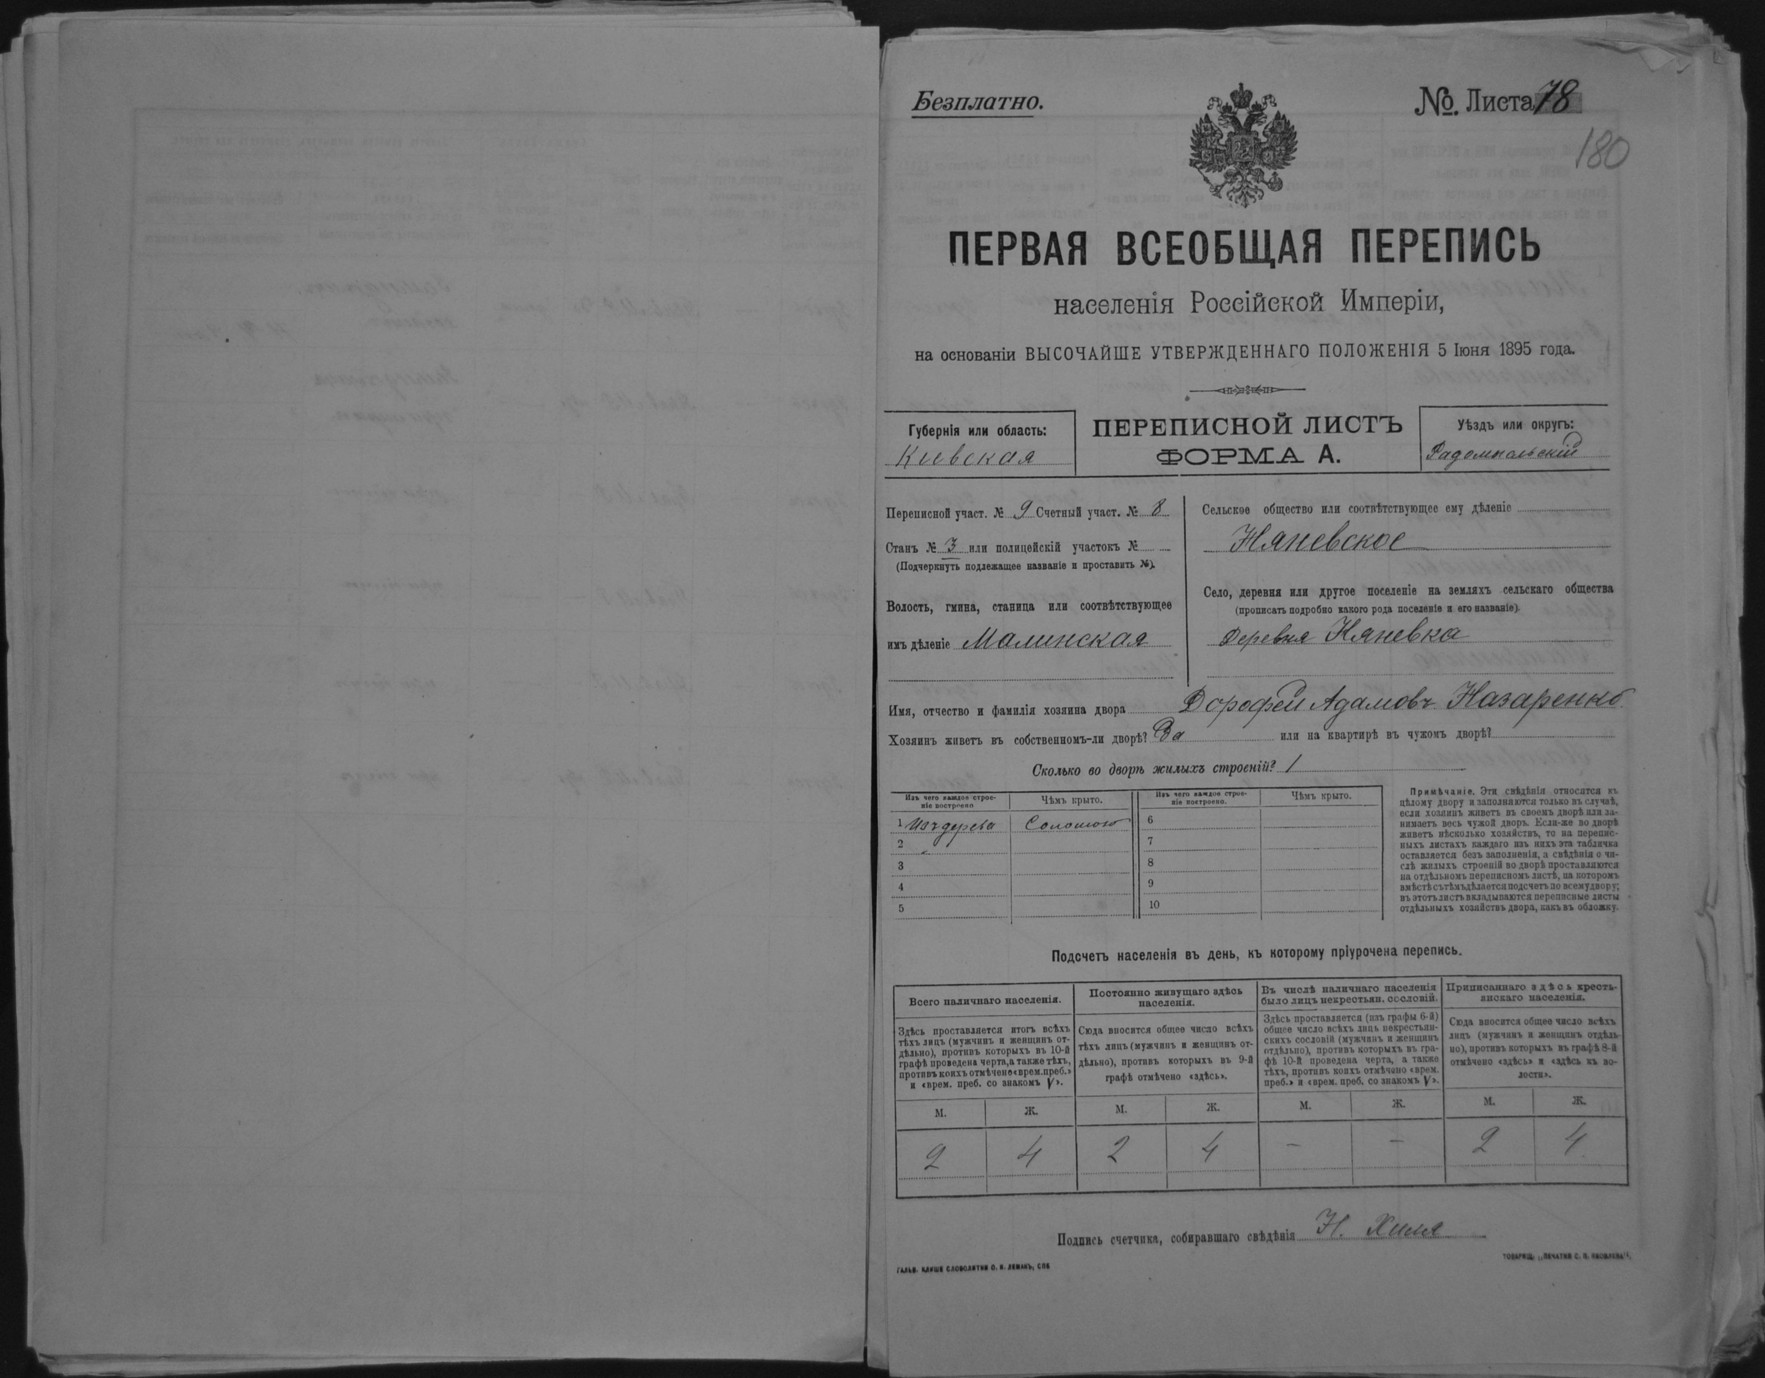 Безплатно.
№. Листа 78
180
ПЕРВАЯ ВСЕОБЩАЯ ПЕРЕПИСЬ
населенія Россійской Имперіи,
на основаніи ВЫСОЧАЙШЕ УТВЕРЖДЕННАГО ПОЛОЖЕНІЯ 5 Іюня 1895 года.
Губернія или область:
Кіевская
ПЕРЕПИСНОЙ ЛИСТЪ
ФОРМА А.
Уѣздъ или округъ:
Радомысльскій
Переписной участ. № 9 Счетный участ. № 8
Станъ № 3 или полицейскій участокъ №
(Подчеркнуть подлежащее названіе и проставить №).
Волость, гмина, станица или соотвѣтствующее
имъ дѣленіе Малинская
Сельское общество или соотвѣтствующее ему дѣленіе
Няневское
Село, деревня или другое поселеніе на земляхъ сельскаго общества
(прописать подробно какого рода поселеніе и его названіе).
Деревня Няневка
Имя, отчество и фамилія хозяина двора Дорофей Адамовъ Назаренко
Хозяинъ живетъ въ собственномъ-ли дворѣ? Да или на квартирѣ въ чужомъ дворѣ?
Сколько во дворѣ жилыхъ строеній? 1
Изъ чего каждое строе-
ніе построено.
Чѣмъ крыто.
Изъ чего каждое строе-
ніе построено.
Чѣмъ крыто.
1 Изъ дерева Соломою
2
3
4
5
6
7
8
9
10
Примѣчаніе. Эти свѣдѣнія относятся къ
цѣлому двору и заполняются только въ случаѣ,
если хозяинъ живетъ въ своемъ дворѣ или за-
нимаетъ весь чужой дворъ. Если-же во дворѣ
живетъ нѣсколько хозяйствъ, то на перепис-
ныхъ листахъ каждаго изъ нихъ эта табличка
оставляется безъ заполненія, а свѣдѣнія о чи-
слѣ жилыхъ строеній во дворѣ проставляются
на отдѣльномъ переписномъ листѣ, на которомъ
вмѣстѣ съ тѣмъ дѣлается подсчетъ по всему двору;
въ этотъ листъ вкладываются переписные листы
отдѣльныхъ хозяйствъ двора, какъ въ обложку.
Подсчетъ населенія въ день, къ которому пріурочена перепись.
Всего наличнаго населенія.
Здѣсь проставляется итогъ всѣхъ
тѣхъ лицъ (мужчинъ и женщинъ от-
дѣльно), противъ которыхъ въ 10-й
графѣ проведена черта, а также тѣхъ,
противъ коихъ отмѣчено «врем. преб.»
и «врем. преб. со знакомъ V».
Постоянно живущаго здѣсь
населенія.
Сюда вносится общее число всѣхъ
тѣхъ лицъ (мужчинъ и женщинъ от-
дѣльно), противъ которыхъ въ 9-й
графѣ отмѣчено «здѣсь».
Въ числѣ наличнаго населенія
было лицъ некрестьян. сословій.
Здѣсь проставляется (изъ графы 6-й)
общее число всѣхъ лицъ некрестьян-
скихъ сословій (мужчинъ и женщинъ
отдѣльно), противъ которыхъ въ гра-
фѣ 10-й проведена черта, а также
тѣхъ, противъ коихъ отмѣчено «врем.
преб.» и «врем. преб. со знакомъ V».
Приписаннаго здѣсь кресть-
янскаго населенія.
Сюда вносится общее число всѣхъ
лицъ (мужчинъ и женщинъ отдѣль-
но), противъ которыхъ въ графѣ 8-й
отмѣчено «здѣсь» и «здѣсь въ во-
лости».
М. Ж. М. Ж. М. Ж. М. Ж.
2 4 2 4 – – 2 4
Подпись счетчика, собиравшаго свѣдѣнія Н. Хиля
ГАЛЬВ. КЛИШЕ СЛОВОЛИТНИ О. И. ЛЕМАНЪ, СПБ
ТОВАРИЩ. „ПЕЧАТНЯ С. П. ЯКОВЛЕВА“.